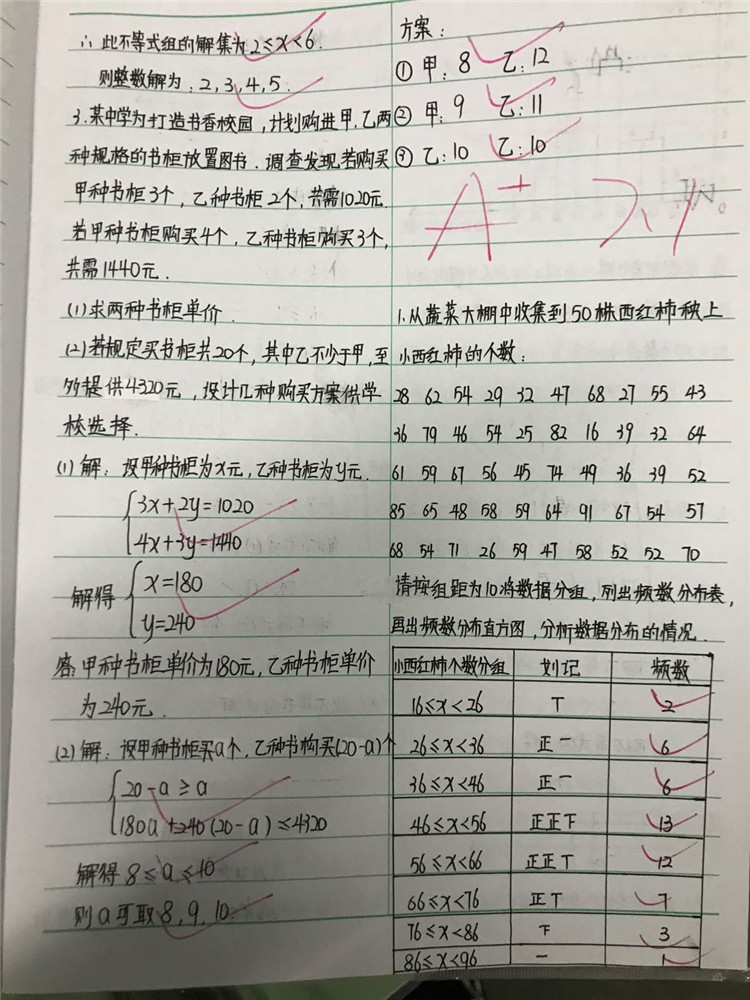 ∴此不等式组的解集为2≤x<6.
则整数解为:2,3,4,5.
3.某中学为打造书香校园,计划购进甲.乙两
种规格的书柜放置图书.调查发现若购买
甲种书柜3个,乙种书柜2个,共需1020元.
若甲种书柜购买4个,乙种书柜购买3个,
共需1440元.
(1)求两种书柜单价.
(2)若规定买书柜共20个,其中乙不少于甲,至
多提供4320元,设计几种购买方案供学
校选择.
(1)解:设甲种书柜为x元,乙种书柜为y元.
3x+2y=1020
4x+3y=1440
解得 x=180
y=240
答:甲种书柜单价为180元,乙种书柜单价
为240元.
(2)解:设甲种书柜买a个,乙种书构买(20-a)个
20-a≥a
180a+240(20-a)≤4320
解得8≤a≤10
则a可取8,9,10
方案:
①甲:8 乙:12
②甲:9 乙:11
③乙:10 乙:10
A+
1.从蔬菜大棚中收集到50株西红柿秧上
小西红柿的个数:
28 62 54 29 32 47 68 27 55 43
36 79 46 54 25 82 16 39 32 64
61 59 67 56 45 74 49 36 39 52
85 65 48 58 59 64 91 67 54 57
68 54 71 26 59 47 58 52 52 70
请按组距为10将数据分组,列出频数分布表,
画出频数分布直方图,分析数据分布的情况.
小西红柿个数分组 划记 频数
16≤x<26 丅 2
26≤x<36 正一 6
36≤x<46 正一 6
46≤x<56 正正下 13
56≤x<66 正正丅 12
66≤x<76 正丅 7
76≤x<86 下 3
86≤x<96 一 1